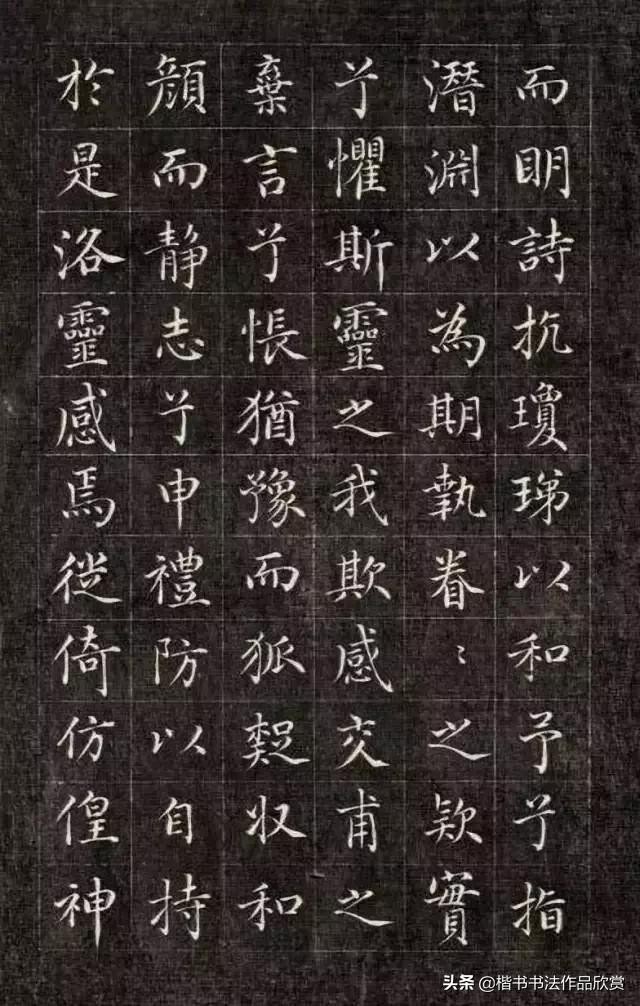 而眀詩抗瓊珶以和予兮指
潛淵以為期執眷〻之欵實
兮懼斯靈之我欺感交甫之
棄言兮悵猶豫而狐疑収和
顏而静志兮申禮防以自持
於是洛靈感焉徙倚仿偟神
头条 @楷书书法作品欣赏